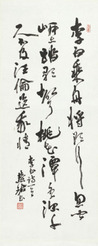 李白乘舟將欲行忽聞
岸上踏歌聲桃花潭水深千
尺不及汪倫送我情
李白詩